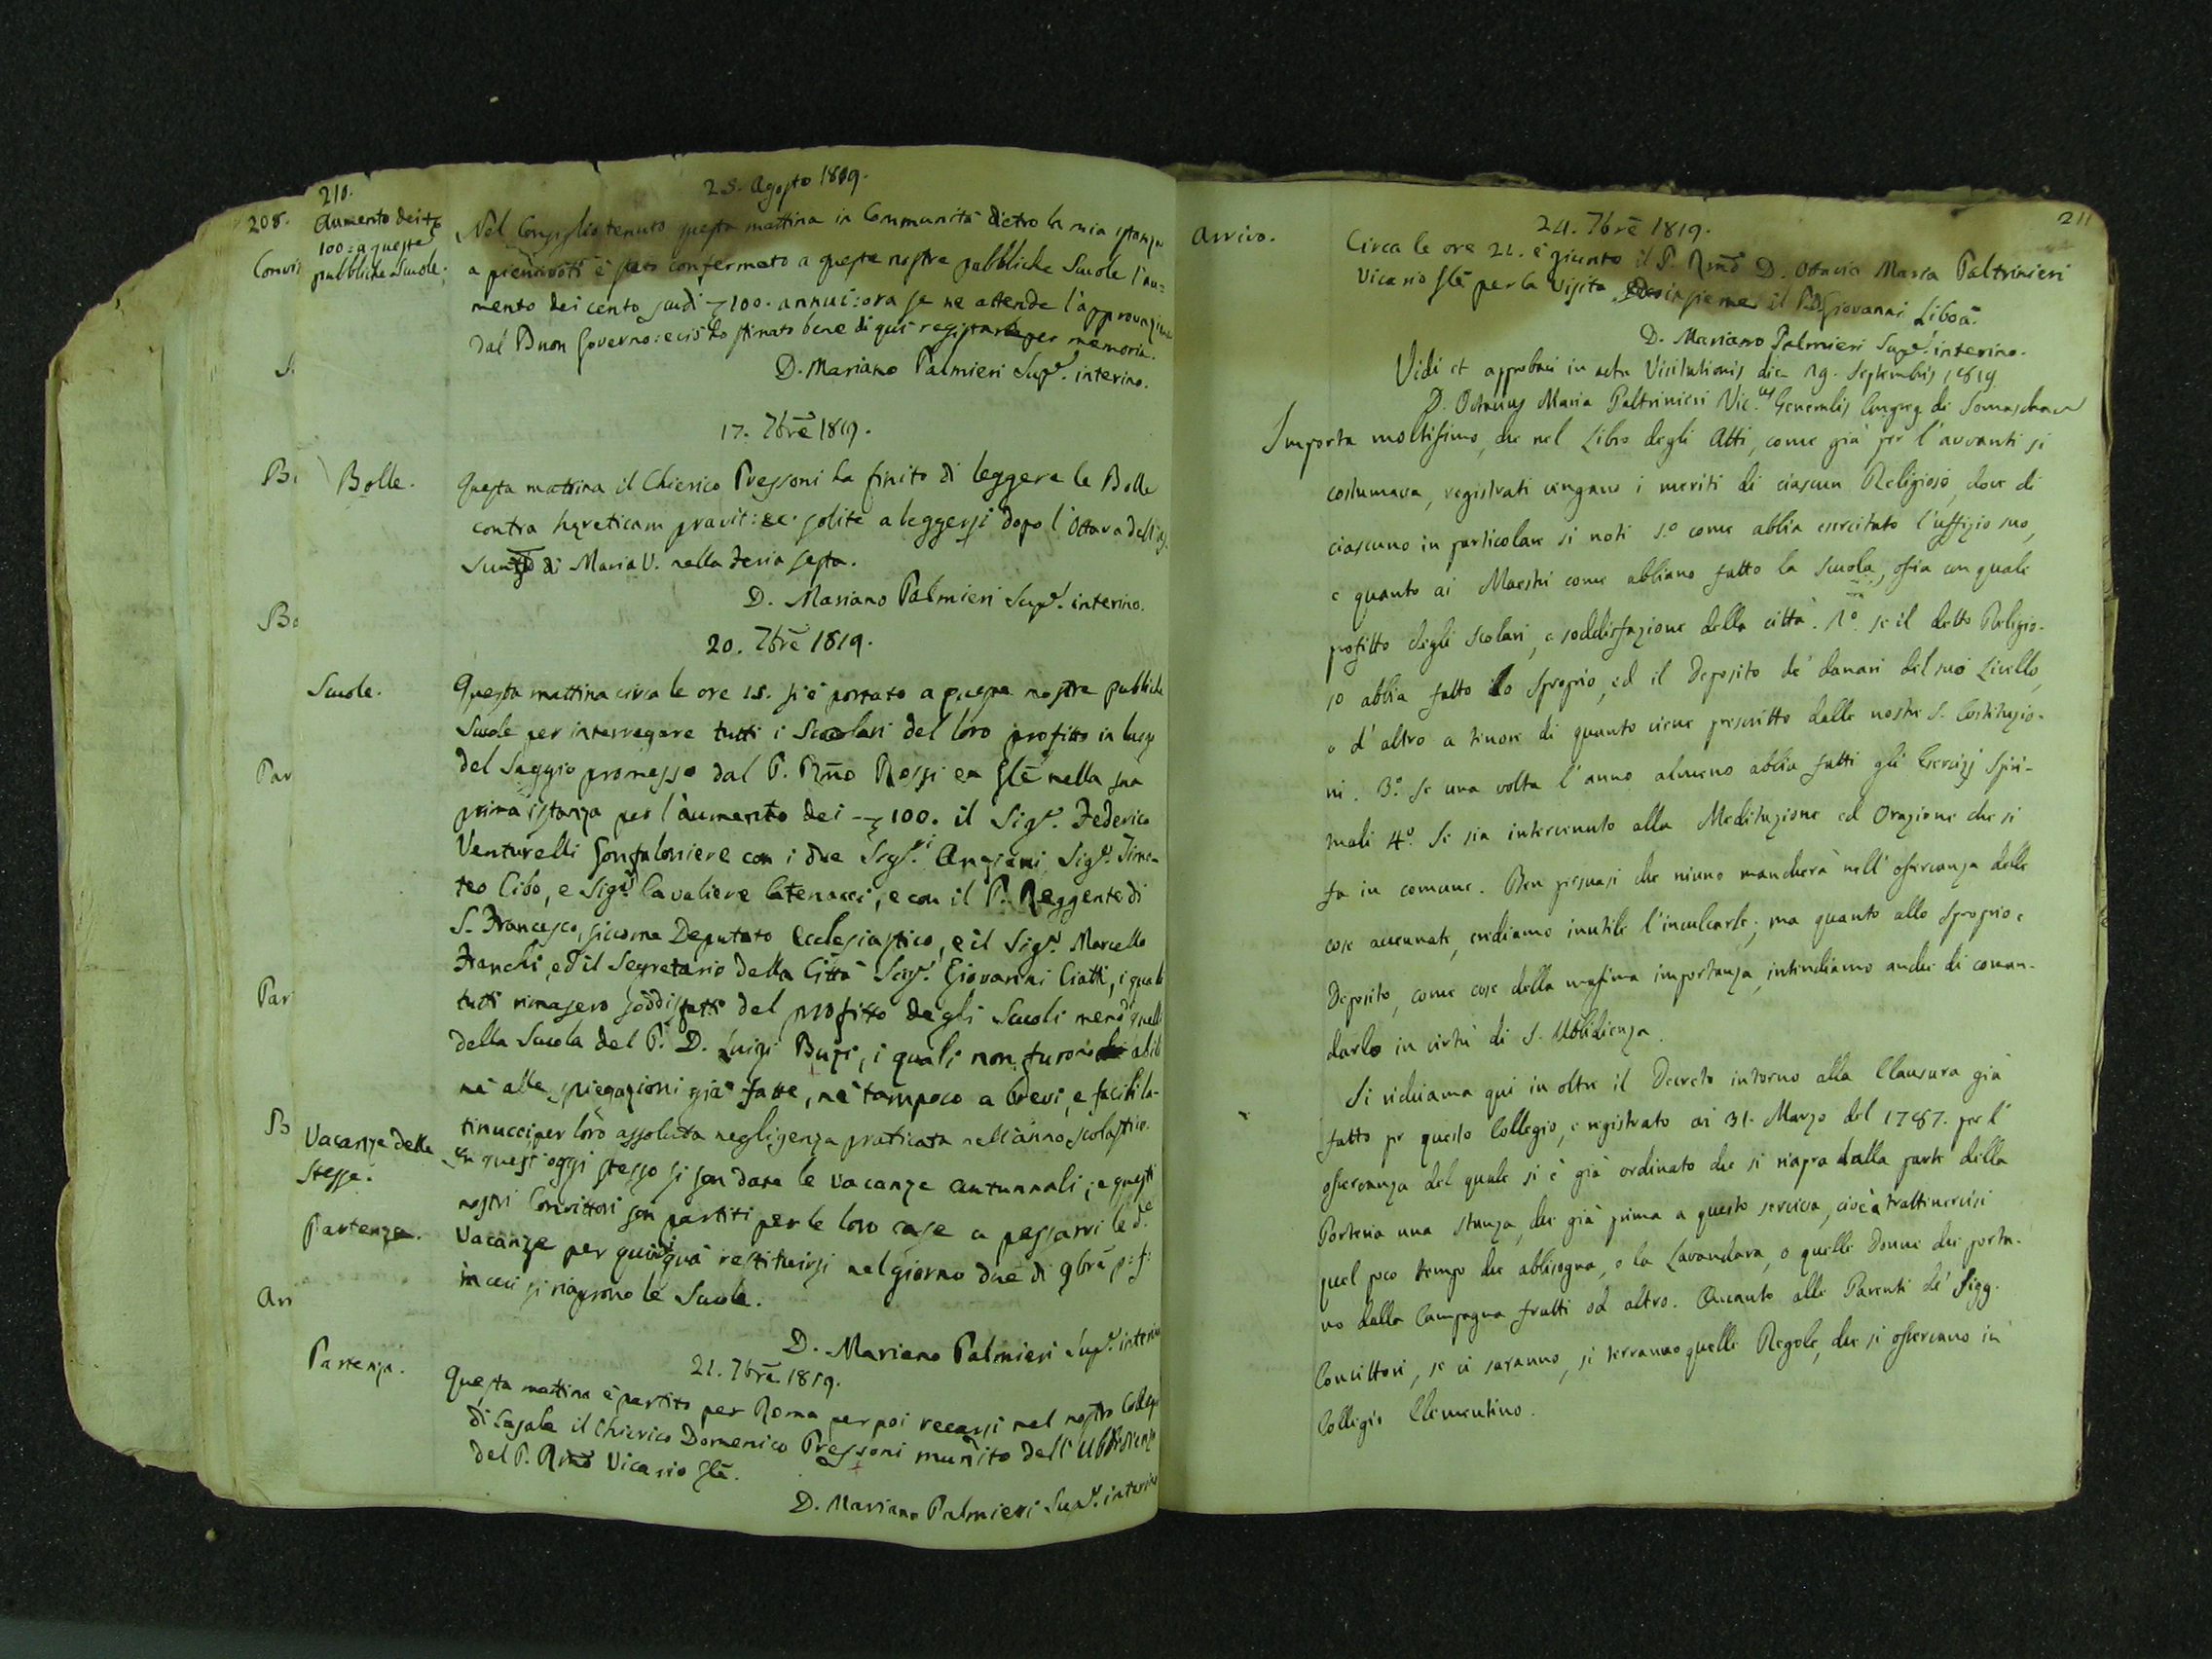 210.
25. Agosto 1819.
208.
Aumento dei
100: a queste
pubbliche Scuole.
Convi
Nel Consiglio tenuto questa mattina in Communità dietro la mia istanza
a pieni voti è stato confermato a queste nostre pubbliche Scuole l'au=
mento dei cento scudi 100. annui: ora se ne attende l'approvazione
dal Buon Governo: e ciò ho stimato bene di qui registrare per memoria.
D. Mariano Palmieri Supr. interino.
17. 7bre 1819.
B.
Bolle.
Questa mattina il Chierico Pressoni ha finito di leggere le Bolle
contra hęreticam pravit: ec. solite a leggersi dopo l'Ottava dell'As.
sunzo di Maria V. nella feria sesta.
D. Mariano Palmieri Supr. interino.
Bo
20. 7bre 1819.
Scuole.
Questa mattina circa le ore 15. si è portato a queste nostre pubbliche
Scuole per interrogare tutti i Scolari del loro profitto in luogo
Par
del Saggio promesso dal P. Rmo Rossi ex Gle nella sua
prima istanza per l'aumento dei 100. il Sigr. Federico
Venturelli Gonfaloniere con i due Sigri. Anziani Sigr. Timo-
teo Cibo, e Sigr. Cavaliere Catenacci, e con il P. Reggente di
S. Francesco, siccome Deputato Ecclesiastico, e il Sigr. Marcello
Franchi, ed il Segretario della Città Sigr. Giovanni Ciatti, i quali
Par
tutti rimasero soddisfatti del profitto degli Scuoli meno quelli
della Scuola del P. D. Luigi Buzi, i quali non furono abili
nè alle spiegazioni già fatte, nè tampoco a brevi, e facili la-
tinucci per loro assoluta negligenza praticata nell'anno scolastico.
Vacanze delle
stesse.
In quest'oggi stesso si son date le vacanze autunnali; e questi
nostri Convittori son partiti per le loro case a passarvi le de.
Partenza.
Vacanze per quindi quà restituirsi nel giorno due di 9bre p: f:
in cui si riaprono le Scuole.
D. Mariano Palmieri Supr. interino
Arr
21. 7bre 1819.
Partenza.
Questa mattina è partito per Roma per poi recarsi nel nostro Collegio
di Casale il Chierico Domenico Pressoni munito dell'Ubbidienza
del P. Rmo Vicario Gle.
D. Mariano Palmieri Supr. interino
211
24. 7bre 1819.
Arrivo.
Circa le ore 21. è giunto il P. Rmo D. Ottavio Maria Paltrinieri
Vicario Gle per la Visita, ed insieme il P. D. Giovanni Liboà.
D. Mariano Palmieri Supr. interino.
Vidi et approbavi in actu Visitationis die 29. Septembris 1819
D. Octavius Maria Paltrinieri Vic.us Generalis Congreg. di Somascha
Importa moltissimo, che nel Libro degli Atti, come già per l'avvanti si
costumava, registrati vengano i meriti di ciascun Religioso, dove di
ciascuno in particolare si noti 1.o come abbia esercitato l'uffizio suo,
e quanto ai Maestri come abbiano fatto la Scuola, ossia con quale
profitto degli Scolari, e soddisfazione della città. 2o. se il detto Religio-
so abbia fatto lo Sproprio, ed il Deposito de' danari del suo Livello,
o d'altro a tenore di quanto viene prescritto dalle nostre S. Costituzio-
ni. 3.o Se una volta l'anno almeno abbia fatti gli Esercizj Spiri-
tuali 4.o Se sia intervenuto alla Meditazione ed Orazione che si
fa in comune. Ben persuasi che niuno mancherà nell'osservanza delle
cose accennate, crediamo inutile l'inculcarle; ma quanto allo Sproprio e
Deposito, come cose della massima importanza, intendiamo anche di coman-
darlo in virtù di S. Ubbidienza.
Si richiama qui in oltre il Decreto intorno alla Clausura già
fatto per questo Collegio, e registrato ai 31. Marzo del 1787. per l'
osservanza del quale si è già ordinato che si riapra dalla parte della
Porteria una stanza, che già prima a questo serviva, cioè a trattenervisi
quel poco tempo che abbisogna, o la Lavandara, o quelle Donne che porta-
no dalla Campagna frutti od altro. Quanto alle Parenti de' Sigg.
Convittori, se ci saranno, si terranno quelle Regole, che si osservano in
Collegio Clementino.